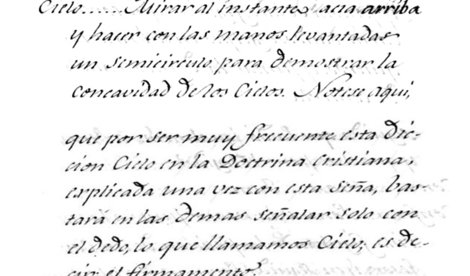 Cielo..... Mirar al instante, acia arriba
y hacer con las manos levantadas
un semicirculo para demostrar la
concavidad de los Cielos. Notese aqui,
que por ser muy frecuente esta dic-
cion Cielo en la Doctrina cristiana,
explicada una vez con esta seña, bas-
tará en las demas señalar solo con
el dedo, lo que llamamos Cielo, es de-
cir, el firmamento.